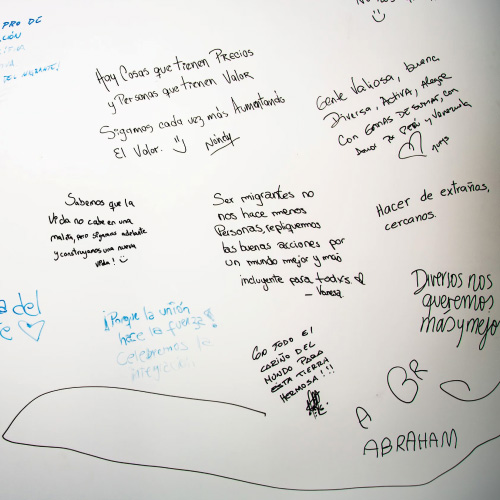 PRO DE
DEL MIGRANTE!
Hay Cosas que tienen Precios
y Personas que tienen Valor
Sigamos cada vez más Aumentando
El Valor.
Nandy
Gente Valiosa, buena,
Diversa, Activa, Alegre
Con GANAS DE SUMAR, con
Amor por Perú y Venezuela
Sabemos que la
vida no cabe en una
maleta, pero sigamos adelante
y construyamos una nueva
vida!
Ser migrantes no
nos hace menos
Personas, repliquemos
las buenas acciones por
un mundo mejor y más
incluyente para todxs.
- Vanesa
Hacer de extraños,
cercanos.
a del
e
¡Porque la unión
hace la fuerza!
Celebremos la
integración
Diversos nos
queremos
más y mejor
Con TODO El
CARIÑO DEL
MUNDO PARA
ESTA TIERRA
HERMOSA!!!
A
GR
ABRAHAM